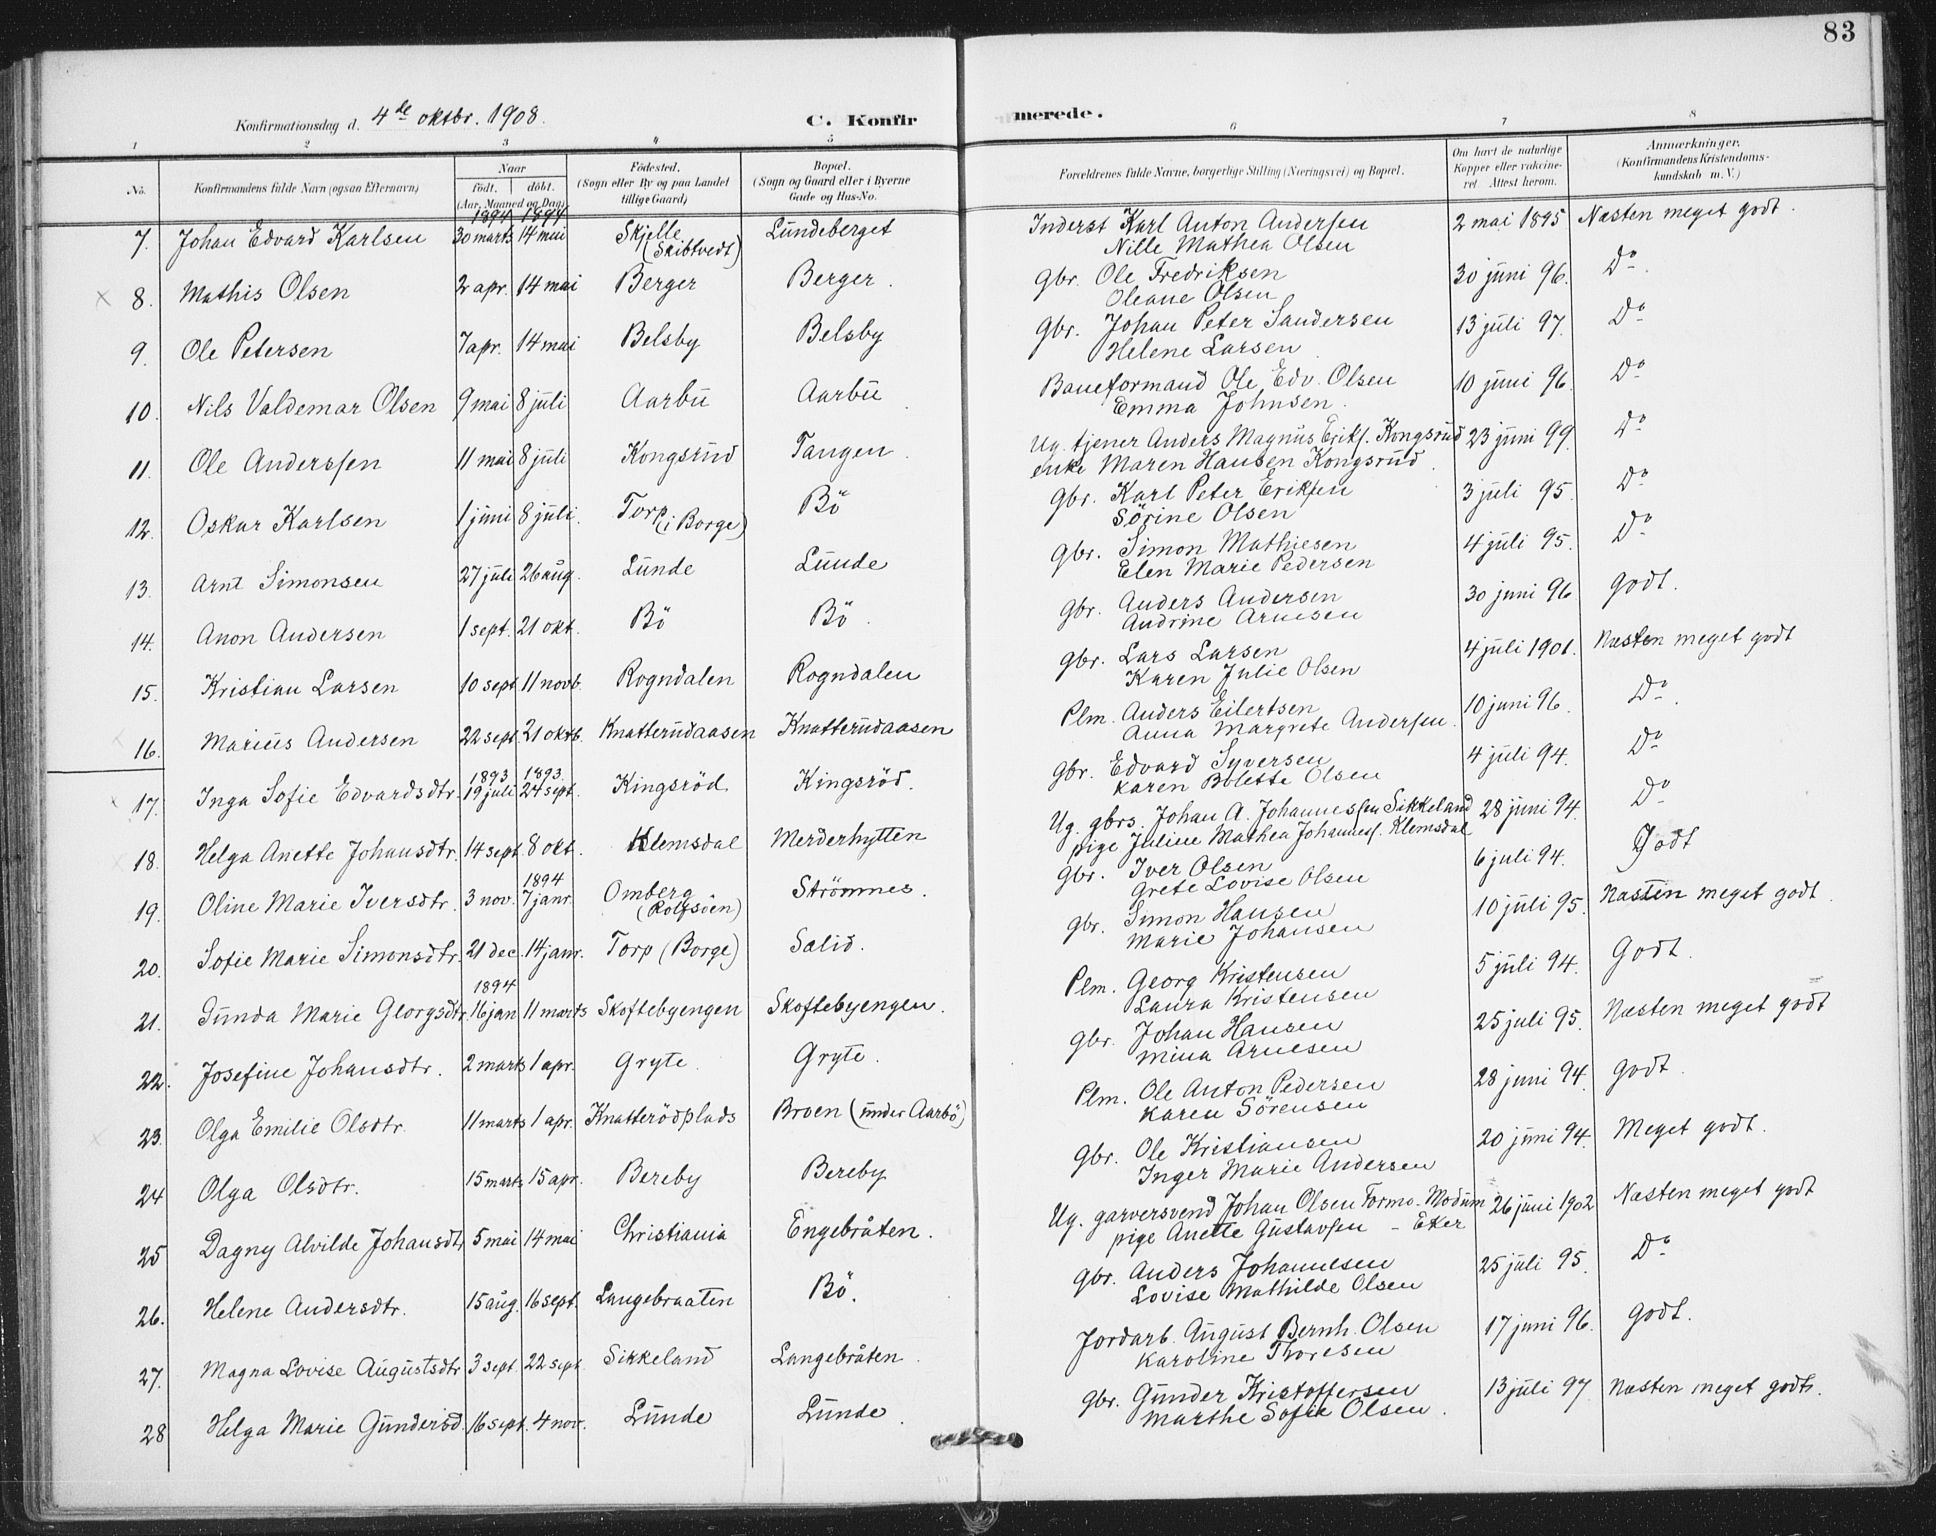 83
Konfirmationsdag d. 4de oktbr. 1908. C. Konfirmerede.
1 2 3 4 5 6 7 8
No. Konfirmandens fulde Navn (ogsaa Efternavn) Naar født. døbt. (Aar, Maaned og Dag) Fødested. (Sogn eller By og paa Landet tillige Gaard) Bopæl. (Sogn og Gaard eller i Byerne Gade og Hus-No. Forældrenes fulde Navne, borgerlige Stilling (Næringsvei) og Bopæl. Om havt de naturlige Kopper eller vakcineret. Attest herom. Anmærkninger. (Konfirmandens Kristendomskundskab m. V.)
1894 1894
7. Johan Edvard Karlsen 30 marts 14 mai Skjelle (Skibtvedt) Lundeberget Inderst Karl Anton Anderssen 2 mai 1895 Næsten meget godt.
Nille Mathea Olsen
8. Mathis Olsen 2 apr. 14 mai Berger Berger. Gbr. Ole Fredriksen 30 juni 96. Do.
Oleane Olsen
9. Ole Petersen 7 apr. 14 mai Belsby Belsby Gbr. Johan Peter Sandersen 13 juli 97. Do
Helene Larsen
10. Nils Valdemar Olsen 9 mai 8 juli Aarbu Aarbu Baneformand Ole Edv. Olsen 10 juni 96. Do
Emma Johnsen.
11. Ole Anderssen 11 mai 8 juli Kongsrud Tangen. Ug. tjener Anders Magnus Eriks. Kongsrud 23 juni 99. Do
enke Maren Hansen Kongsrud.
12. Oskar Karlsen 1 juni 8 juli. Torp (i Borge) Bö Gbr. Karl Peter Erikssen 3 juli 95. Do
Sörine Olsen
13. Arnt Simonsen 27 juli 26 aug. Lunde Lunde Gbr. Simon Mathiesen 4 juli 95. Do
Elen Marie Pedersen
14. Anon Andersen 1 sept. 21 okt. Bö Bö. Gbr. Anders Andersen 30 juni 96 Godt.
Andrine Arnesen
15. Kristian Larsen 10 sept. 11 novb. Rogndalen Rogndalen Gbr. Lars Larsen 4 juli 1901. Næsten meget godt
Karen Julie Olsen
16. Marius Andersen 22 sept. 21 oktb. Knatterudaasen Knatterudaasen Plm. Anders Eilertsen 10 juni 96. Do.
Anna Margrete Anderssen.
1893 1893.
17. Inga Sofie Edvardsdtr. 19 juli 24 sept. Kingsröd Kingsröd. Gbr. Edvard Syversen 4 juli 94. Do
Karen Bolette Olsen
18. Helga Anette Johansdtr. 14 sept. 8 okt. Klemsdal Merderhytten Ug. gbrs. Johan A. Johannessen Sikkeland 28 juni 94. Do
pige Juline Mathea Johanness. Klemsdal
1894
19. Oline Marie Iversdtr. 3 nov. 7 janr. Omberg (Rolfsöen) Strömnes. Gbr. Iver Olsen 6 juli 94. Godt
Grete Lovise Olsen
20. Sofie Marie Simonsdtr. 21 dec. 14 janr. Torp (Borge) Salid. Gbr. Simon Hansen 10 juli 95. Næsten meget godt.
Marie Johansen
1894
21. Gunda Marie Georgsdtr. 16 jan 11 marts Skoftebyengen Skoftebyengen. Plm. Georg Kristensen 5 juli 94. Godt.
Laura Kristensen
22. Josefine Johansdtr. 2 marts 1 apr. Gryte. Gryte. Gbr. Johan Hansen 25 juli 95. Næsten meget godt
Mina Arnesen
23. Olga Emilie Olsdtr. 11 marts 1 apr. Knatterödplads Broen (under Aarbö) Plm. Ole Anton Pedersen 28 juni 94. Godt.
Karen Sörensen
24 Olga Olsdtr. 15 marts 15 apr. Bereby Bereby Gbr. Ole Kristiansen 20 juni 94. Meget godt.
Inger Marie Andersen
25 Dagny Alvilde Johansdtr 5 mai 14 mai Christiania Engebråten. Ug. garversvend Johan Olsen Formo. Modum 26 juni 1902 Næsten meget godt
pige Anette Gustavssen - Eker
26. Helene Andersdtr. 15 aug. 16 sept. Langebraaten Bö. Gbr. Anders Johannesen 25 juli 95. Do
Lovise Mathilde Olsen
27. Magna Lovise Augustsdtr 3 sept. 22 sept. Sikkeland Langebråten. Jordarb. August Bernh. Olsen 17 juni 96. Godt.
Karoline Thoresen
28 Helga Marie Gundersd. 16 sept. 4 nov. Lunde Lunde. Gbr. Gunder Kristoffersen 13 juli 97 Næsten meget godt.
Marthe Sofie Olsen.